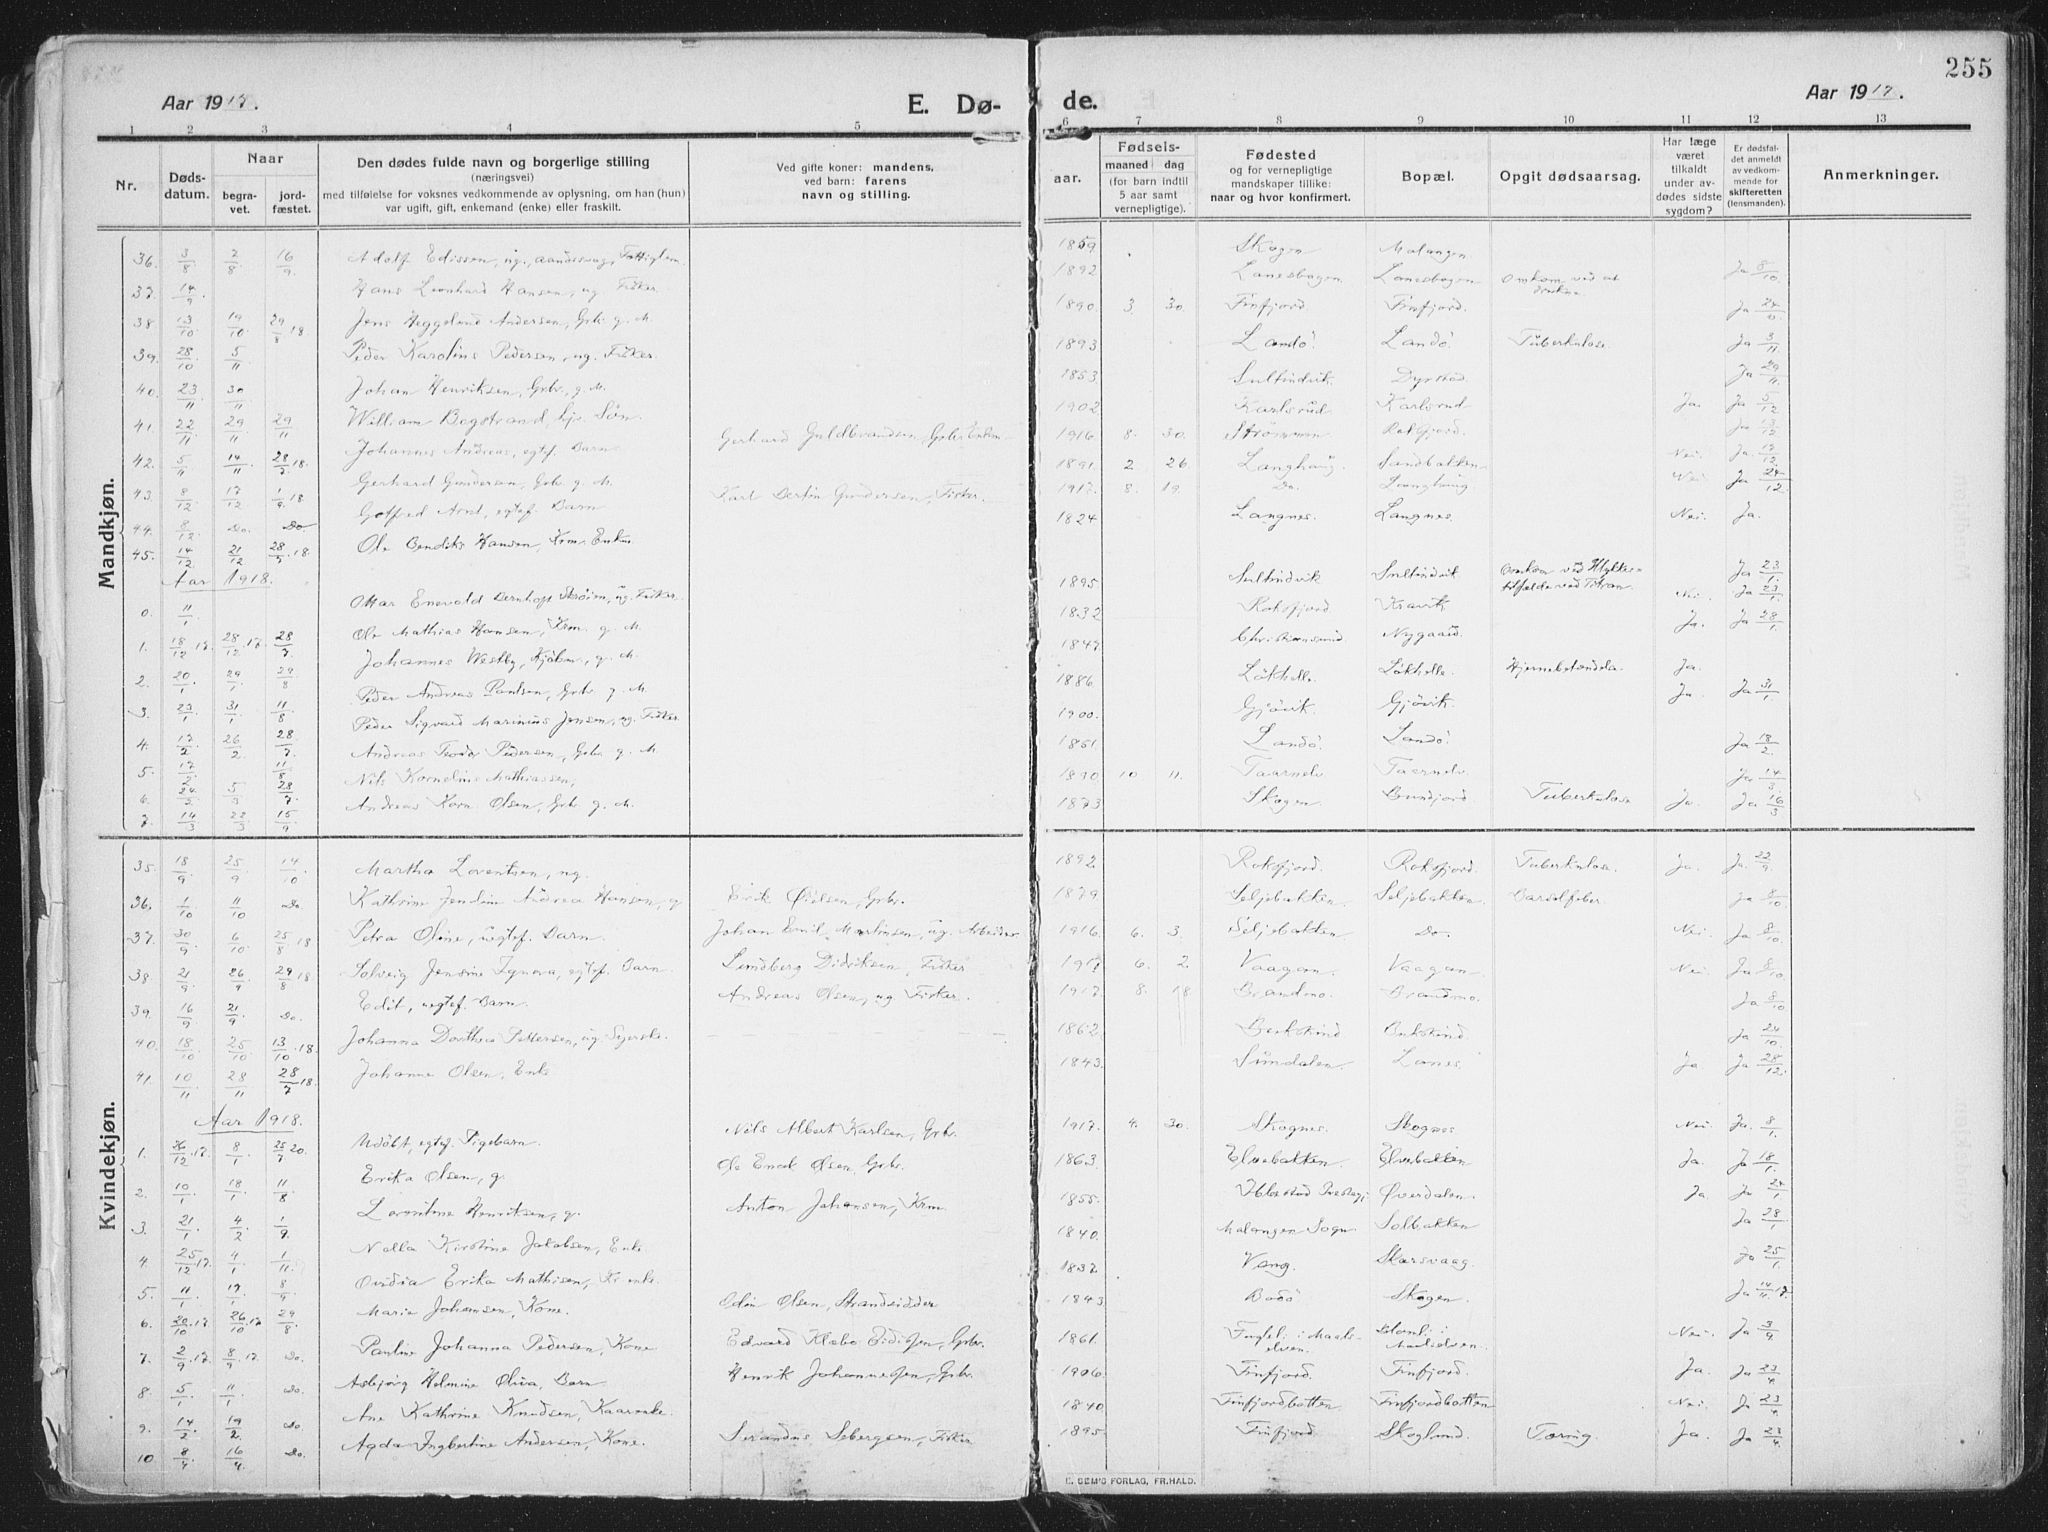 255
Aar 1917.
E. Dø-
de.
Aar 1917.
1 2 3 4 5 6 7 8 9 10 11 12 13
Nr.
Døds-
datum.
Naar
begra-
vet.
jord-
fæstet.
Den dødes fulde navn og borgerlige stilling
(næringsvei)
med tilføielse for voksnes vedkommende av oplysning, om han (hun)
var ugift, gift, enkemand (enke) eller fraskilt.
Ved gifte koner: mandens,
ved barn: farens
navn og stilling.
Fødsels-
aar.
maaned dag
(for barn indtil
5 aar samt
vernepligtige).
Fødested
og for vernepligtige
mandskaper tillike:
naar og hvor konfirmert.
Bopæl.
Opgit dødsaarsag.
Har læge
været
tilkaldt
under av-
dødes sidste
sygdom?
Er dødsfal-
det anmeldt
av vedkom-
mende for
skifteretten
(lensmanden).
Anmerkninger.
Mandkjøn.
36. 3/8 2/8 16/9 Adolf Edissen, ug., Fattiglem 1859 Skogen Malangen
37. 14/9 Hans Leonhard Hansen, ug. Fisker. 1892 Lanesbogen Lanesbogen Omkom ved at Ja 8/10
38 13/10 19/10 29/8 18 Jens Heggelund Andersen, Grbr. g. M. 1890 3. 30. Finfjord. Finfjord. Ja 24/
39. 28/10 5/11 Peder Karolius Pedersen, ug. Fisker. 1893 Landö. Landö. Tuberkulose Ja 3/11
40. 23/11 30/11 Johan Henriksen, Grbr. g. M. 1853 Sultindvik Dyrstad Ja 29/11
41. 22/11 29/11 29/11 William Bogstrand, hj. Sön. 1902 Karlsrud Karlsrud Ja. Ja 5/12
42. 5/11 14/11 28/7 18. Johannes Andreas, egtef. Barn Gerhard Guldbrandsen, Grbr. Enkm. 1916 8. 30. Strömmen Roksfjord. Ja 13/12
43. 8/12 17/12 1/9 18 Gerhard Gundersen, Grbr. g. M. 1891 2 26. Langhaug. Sandbakken Nei. Ja. 17/12
44. 8/12 Do. Do Gotfred Arnt, egtef. Barn Karl Bertin Gundersen, Fisker. 1917. 8. 19. Do. Langhaug. Nei Ja 24/12
45. 14/12 21/12 28/7 18. Ole Bendiks Hansen, Krm. Enkm. 1824 Langnes. Langnes. Nei. Ja.
Aar 1918.
0. 11/1 Ottar Enevald Bernhoft Strøim, ug. Fisker. 1895 Sultindvik Sultindvik Omkom ved Ulykkes- Ja 23/1.
tilfælde ved Titran.
1. 18/12 17 28/12 17 28/7 Ole Mathias Hansen, Krm. g. M. 1832 Roksfjord. Kravik Nei. Ja 23/1.
2. 20/1 29/1 29/8 Johannes Westby, Kjöbm., g. M. 1847 Christiansund Nygaard. Ja. Ja 28/1
3. 23/1 31/1 11/8 Peder Andreas Paulsen, Grbr. g. M. 1886. Løkhelle. Løkhelle Hjernebetændels. Ja.
4. 17/2 26/2 28/7 Peder Sigvard Marinius Jensen, ug. Fisker 1900. Gjövik Gjövik. Ja. Ja 31/1.
5. 17/2 11/8 Andreas Teodor Pedersen, Grbr. g. M. 1851 Landö. Landö. Ja 18/2.
6. 24/2 5/3 28/7 Nils Kornelius Mathiassen, 1890 10 11. Taarnelv Taarnelv. Ja 14/3.
7. 14/3 22/3 15/9 Andreas Korn. Olsen, Grbr. g. M. 1873 Skogen Bundjord Tuberkulose Ja. Ja 16/3
Kvindekjøn.
35. 18/9 25/9 14/10 Martha Lorentsen, ug. 1892. Roksfjord. Roksfjord Tuberkulose Ja. Ja. 22/9.
36. 1/10 11/10 Do. Kathrine Jendine Andrea Hansen, g. Erik Öielsen, Grbr. 1879. Seljebakken. Seljebakken. Barselfeber. Ja 8/10.
37. 30/9 6/10 25/8 18 Petra Oline, uegtef. Barn. Johan Emil Martinsen, ug. Arbeider 1916 6. 3. Seljebakken Do. Nei. Ja 8/10
38 21/9 26/9 29/8 18 Solveig Jensine Ignora, egtef. Barn Lundberg Didriksen, Fisker 1917 6. 2. Vaagan. Vaagan. Nei. Ja 8/10
39. 16/9 21/9 Do. Edit, uegtef. Barn. Andreas Olsen, ug. Fisker. 1917. 8. 18 Brandmo. Brandmo. Ja 8/10
40. 18/10 25/10 13/10 18. Johanna Dorthea Pettersen, ug. Syerske. 1862 Berkskind Bukskind Ja 24/10.
41. 10/11 28/11 28/7 18. Johanne Olsen, Enke 1843. Sundalen. Lanes. Ja Ja 28/12.
Aar 1918.
1. 26/12 17. 8/1 25/7 20. Udöbt, egtef. Pigebarn. Nils Albert Karlsen, Grbr. 1917. 4. 30. Skognes. Skognes Nei. Ja. 8/1.
2. 10/1 18/1 11/8 Erika Olsen, g. Ole Enok Olsen, Grbr. 1863. Elvebakken. Elvebakken Ja. Ja 18/1.
3. 21/1 4/2 1/9 Lorentine Henriksen, g. Anton Johansen, Krm. 1855. Øverdalen. Ja Ja 24/1
4. 25/12 17. 4/1 1/11. Nalla Kirstine Jakobsen, Enke. 1840. Malangen Sogn Solbakken Ja 28/1
5. 11/1 19/1. 8/9 Ovidia Erika Mathisen, Kr. enke. 1837. Vang. Skarsvaag. Ja 25/1.
6. 20/10 17 26/10 17 29/8 Marie Johansen, Kone. Odin Olsen, Strandsidder 1843. Bodö Skogen. Ja 14/11. 17.
7. 2/9 17. 8/9 17. Do. Pauline Johanna Pedersen, Kone Edvard Klæbo Eidissen, Grbr. 1861. Fuglel. i Maals- elven. Nei. Ja 3/9
8. 5/1 11/1 Do. Asbjørg Helmine Oliva, Barn Henrik Johannessen, Grbr. 1906. Finfjord. Finfjord Ja. Ja 23/4.
9. 14/2 19/2 Do Ane Kathrine Knudsen, Kaarenke. 1840. Finfjordbotten. Finfjordbotten Nei Ja 23/4.
10. 8/4 16/4. Do. Agda Ingbertine Andersen, Kone. Serandus Sebergsen, Fisker 1895. Finfjord. Skoglund. Tæring. Ja. Ja 23/4
E. SEM'S FORLAG, FR.HALD.